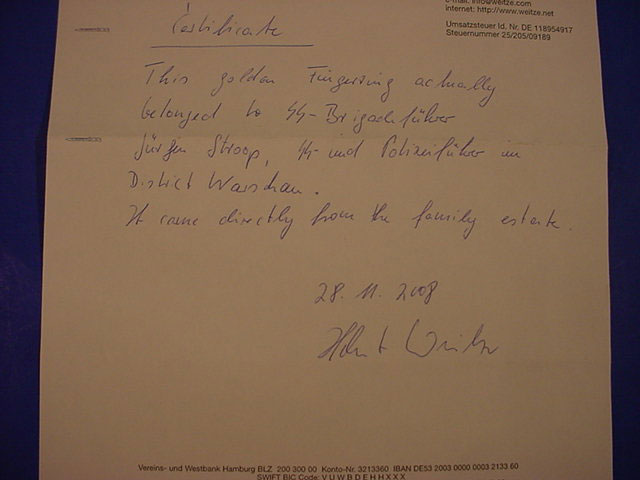 e-mail: info@weitze.com
internet: http://www.weitze.net
Umsatzsteuer Id. Nr. DE 118954917
Steuernummer 25/205/09189
Certificate
This golden Fingerring actually
belonged to SS-Brigadeführer
Jürgen Stroop, SS- und Polizeiführer im
District Warschau.
It came directly from the family estate.
28. 11. 2008
Vereins- und Westbank Hamburg BLZ 200 300 00 Konto-Nr. 3213360 IBAN DE53 2003 0000 0003 2133 60
SWIFT BIC Code: V U W B D E H H X X X